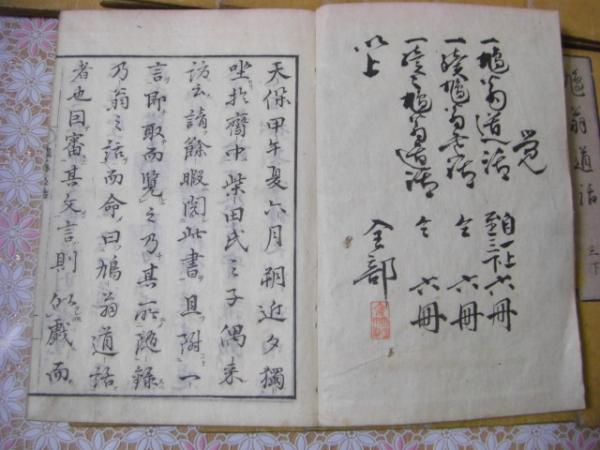 覚
一鳩翁道話 自一上至三下六冊
一続鳩翁道話 仝 六冊
一続々鳩翁道話 仝 六冊
以上 全部
天保甲午夏六月朔近夕獨
坐於齋中柴田氏之子偶来
訪云請餘暇閲此書且附一
言即取而覧之乃其所随録
乃翁之話而命曰鳩翁道話
者也曰審其文言則似戯而
鳩翁道話 三下